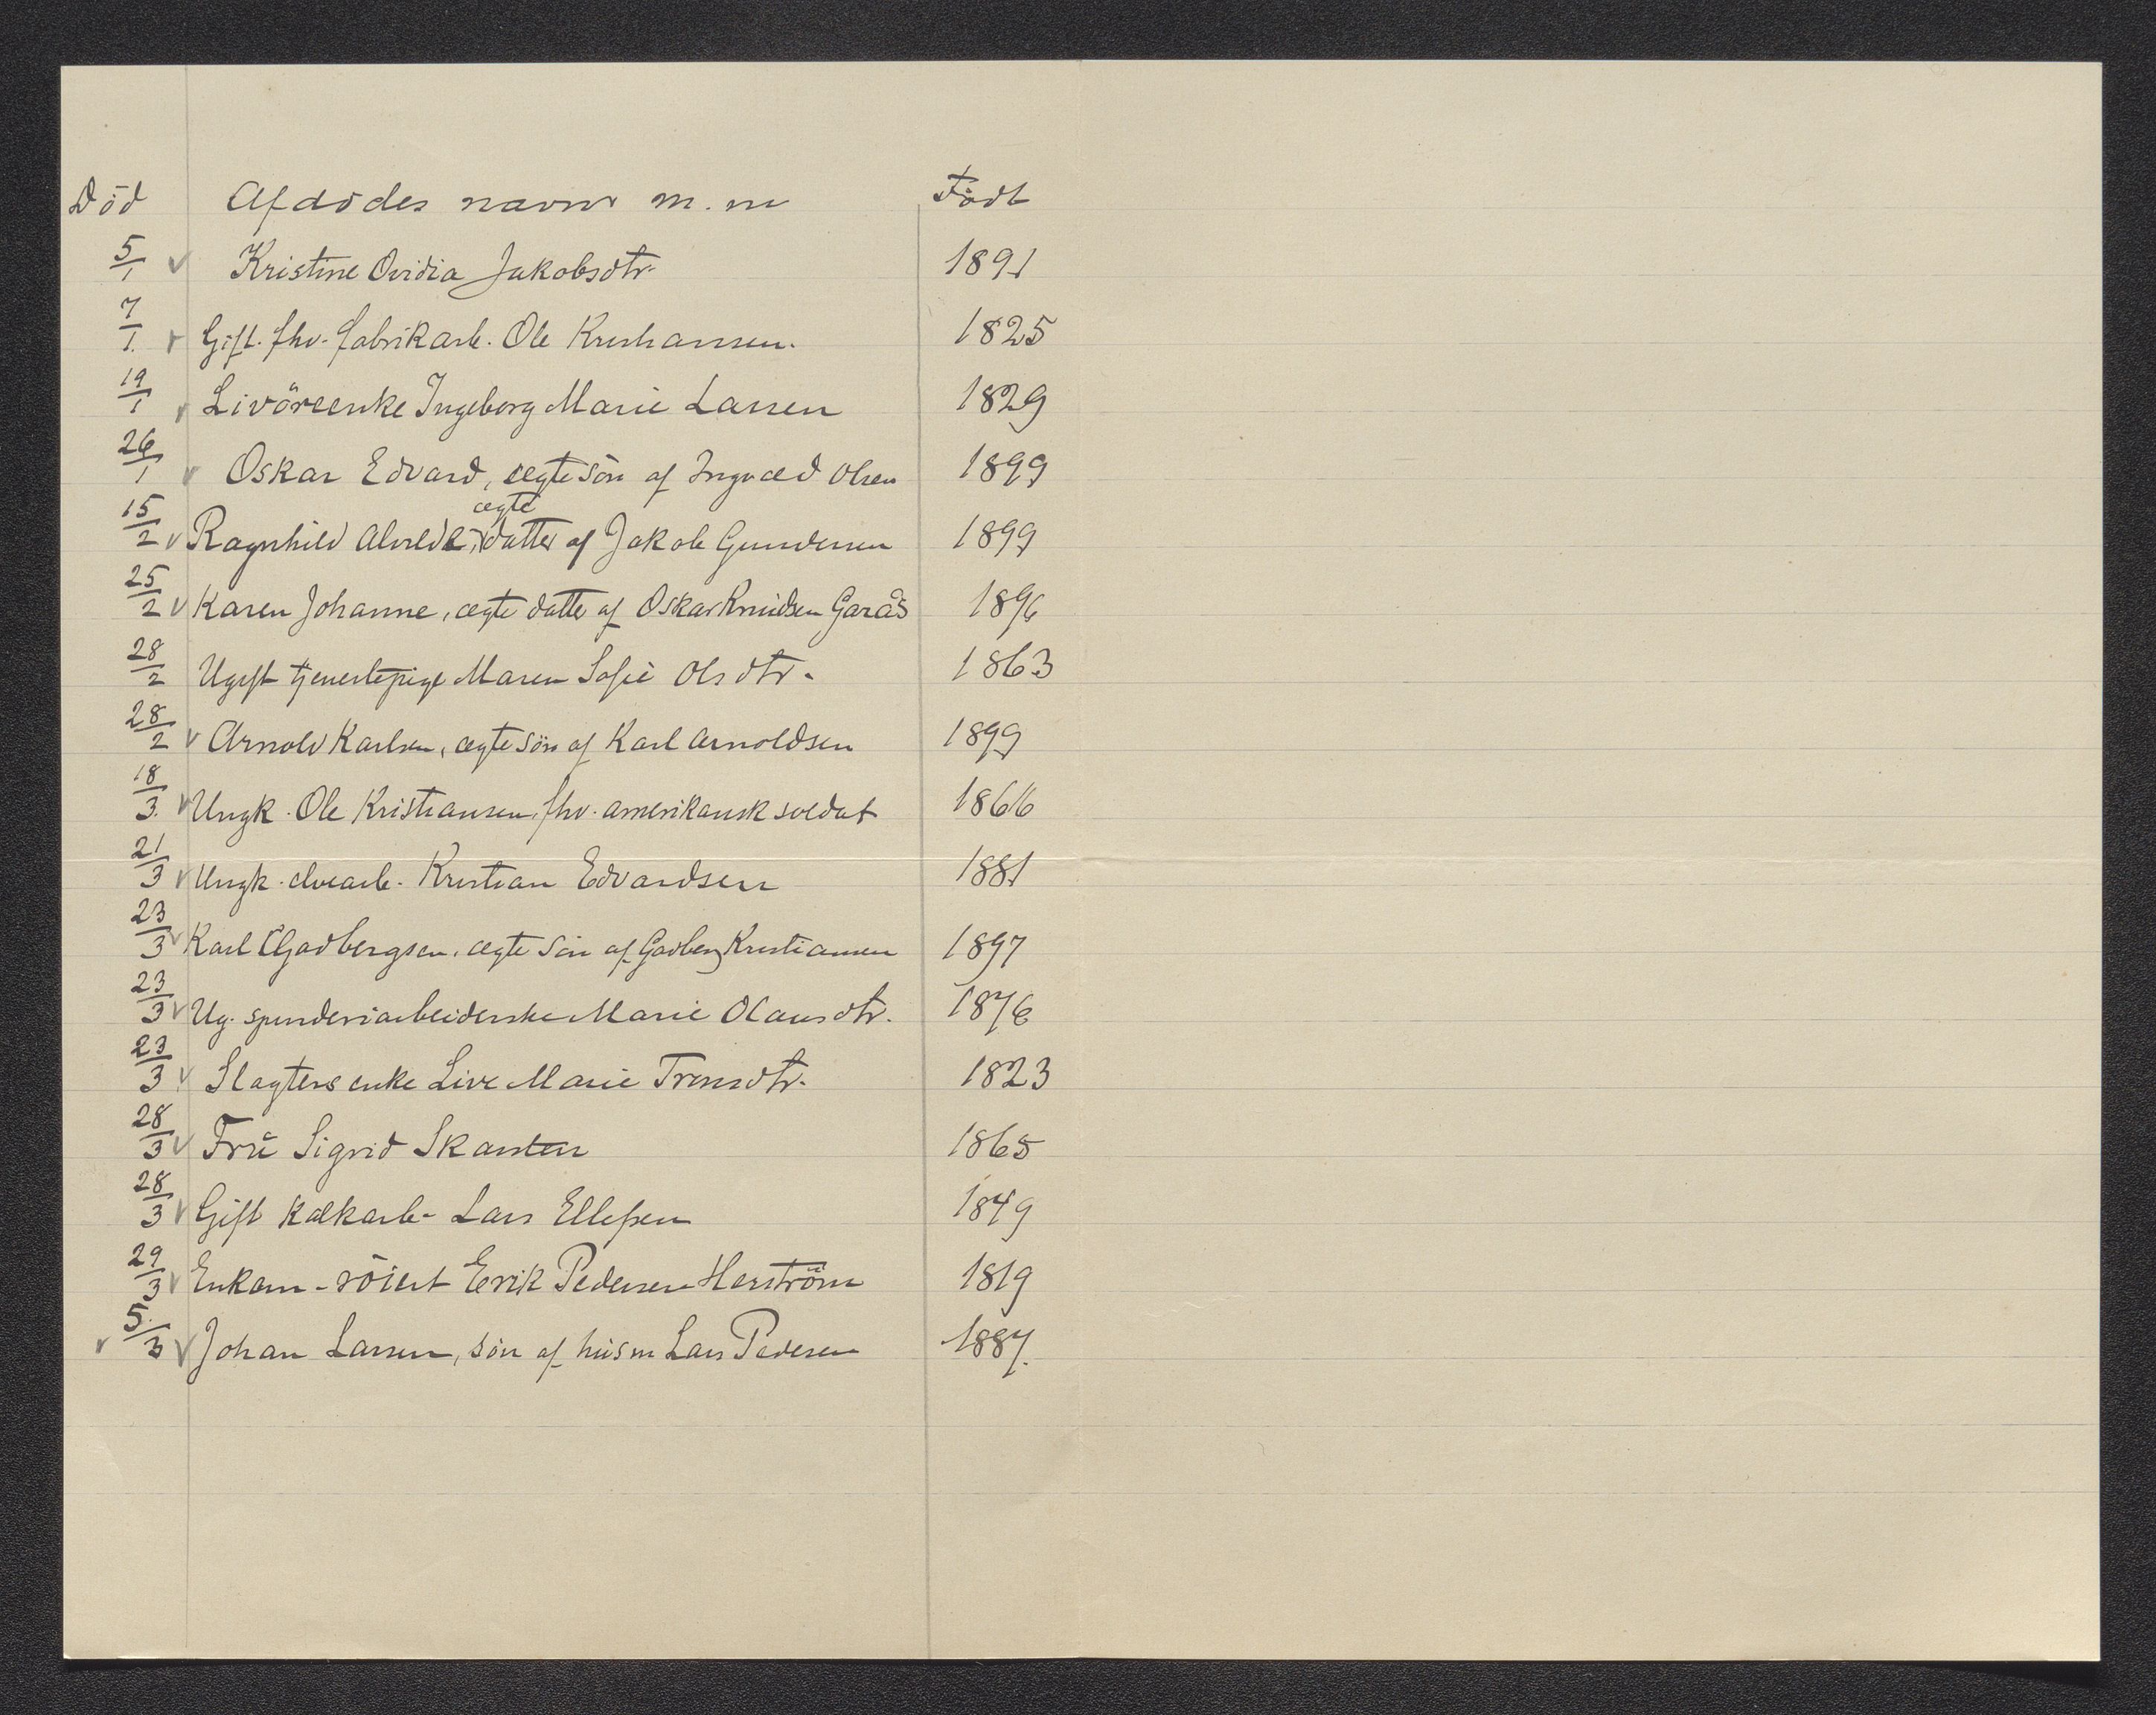 Död Afdödes navn m.m Födt
5/1 Kristine Ovidia Jakobsdtr. 1891
7/1. Gift. fhv. fabrikarb. Ole Kristiansen. 1825
19/1 Livöreenke Ingeborg Marie Larsen 1829
26/1 Oskar Edvard, ægte sön af Ingvald Olsen 1899
15/2 Ragnhild Alvilde, ægte datter af Jakob Gundersen 1899
25/2 Karen Johanne, ægte datter af Oskar Knudsen Garås 1896
28/2 Ugift tjenestepige Maren Sofie Olsdtr. 1863
28/2 Arnold Karlsen, ægte sön af Karl Arnoldsen 1899
18/3. Ungk. Ole Kristiansen, fhv. amerikansk soldat 1866
21/3 Ungk. elvearb. Kristian Edvardsen 1881
23/3 Karl Godbergsen, ægte sön af Godberg Kristiansen 1897
23/3 Ug. spinderiarbeiderske Marie Olausdtr. 1876
23/3 Slagters enke Live Marie 1823
28/3 Frü Sigrid Skarsten 1865
28/3 Gift kalkarb. Lars Ellefsen 1849
29/3 Enkem. Erik Pedersen 1819
5./3 Johan Larsen, sön af hüsm Lars Pedersen 1887.